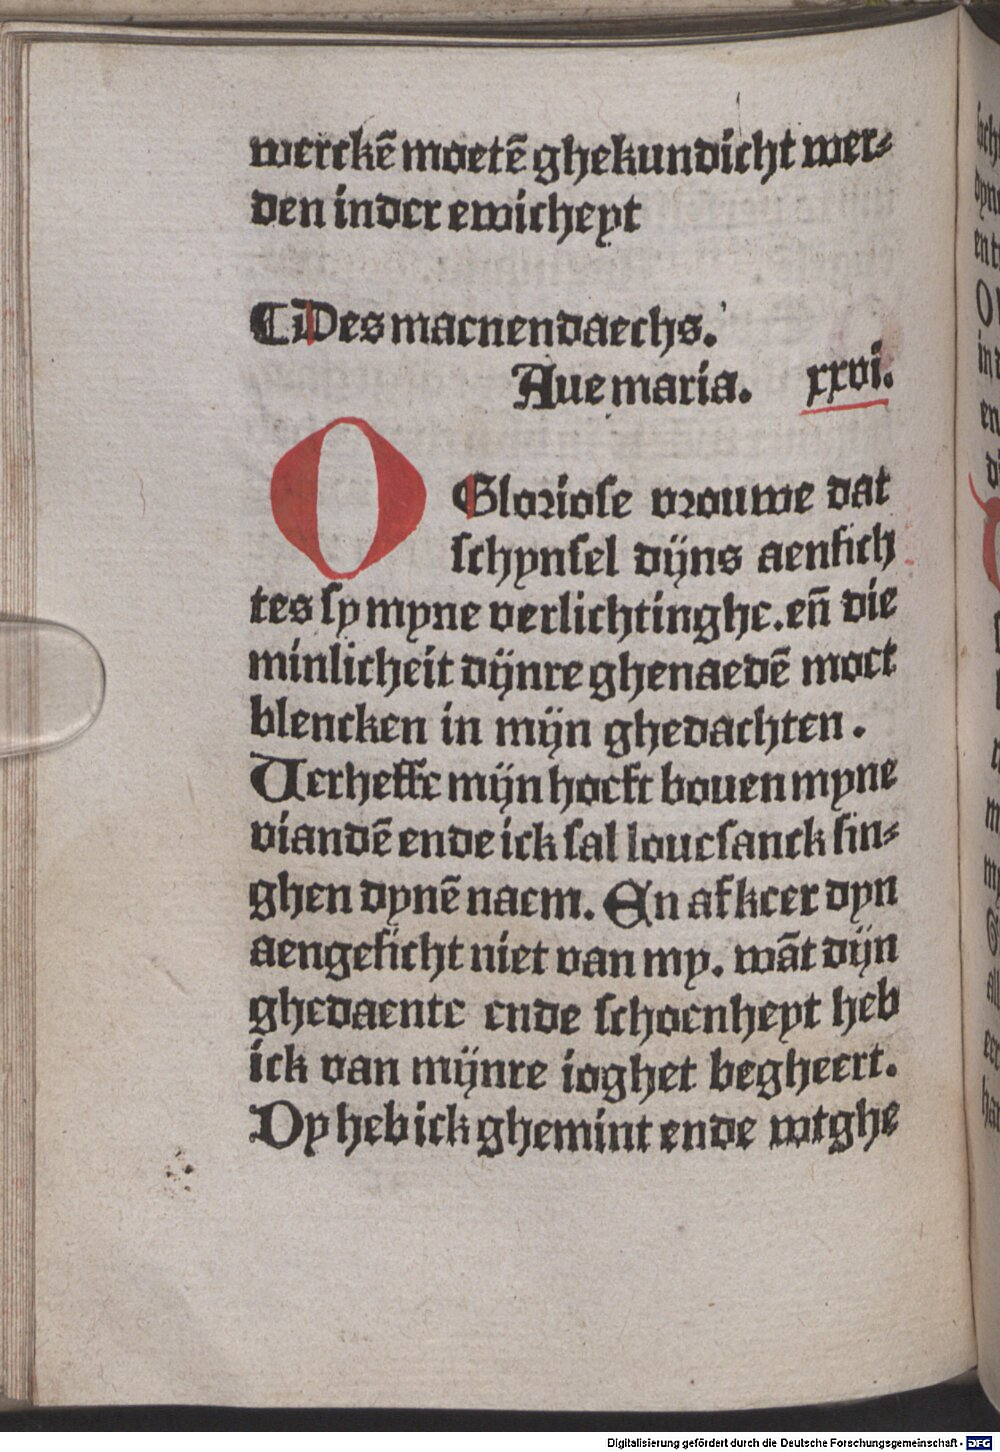 werckē moetē ghekundicht wer⸗
den inder ewicheyt
¶ Des maenendaechs.
Aue maria. xxvi.
O Gloriose vrouwe dat
schynsel dijns aensich
tes sy myne verlichtinghe. eñ die
minlicheit dijnre ghenaedē moet
blencken in mijn ghedachten.
Uerheffe mijn hoeft bouen myne
viandē ende ick sal louesanck sin⸗
ghen dynē naem. En afkeer dyn
aengesicht niet van my. wāt dijn
ghedaente ende schoenheyt heb
ick van mijnre ioghet begheert.
Dy heb ick ghemint ende wtghe
Digitalisierung gefördert durch die Deutsche Forschungsgemeinschaft - DFG